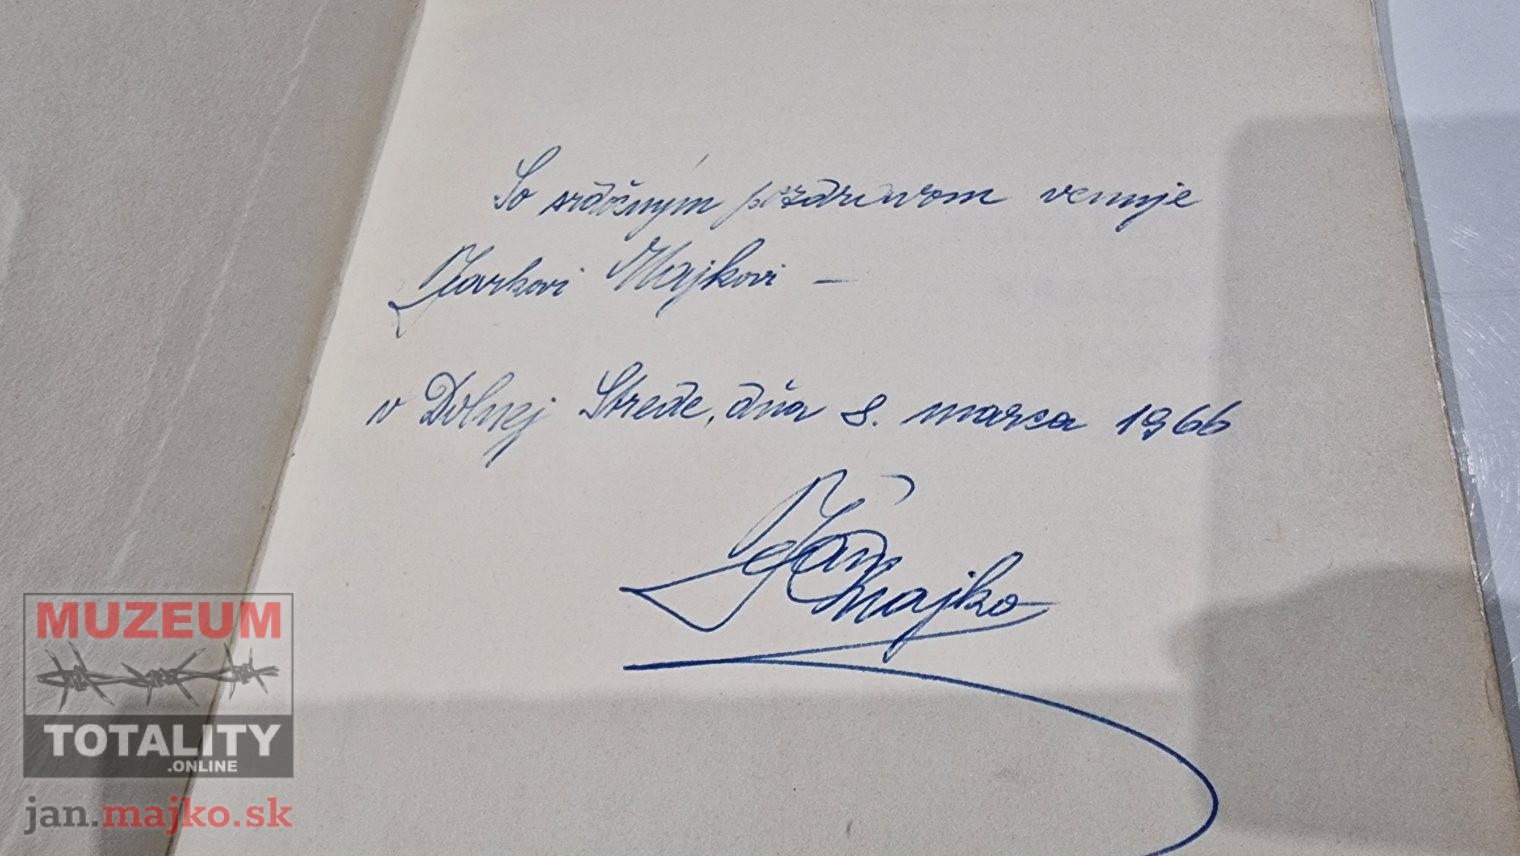 So srdečným pozdravom venuje
Jarkovi Majkovi –
v Dolnej Strede, dňa 8. marca 1966
Ján Majko
MUZEUM
TOTALITY
.ONLINE
jan.majko.sk